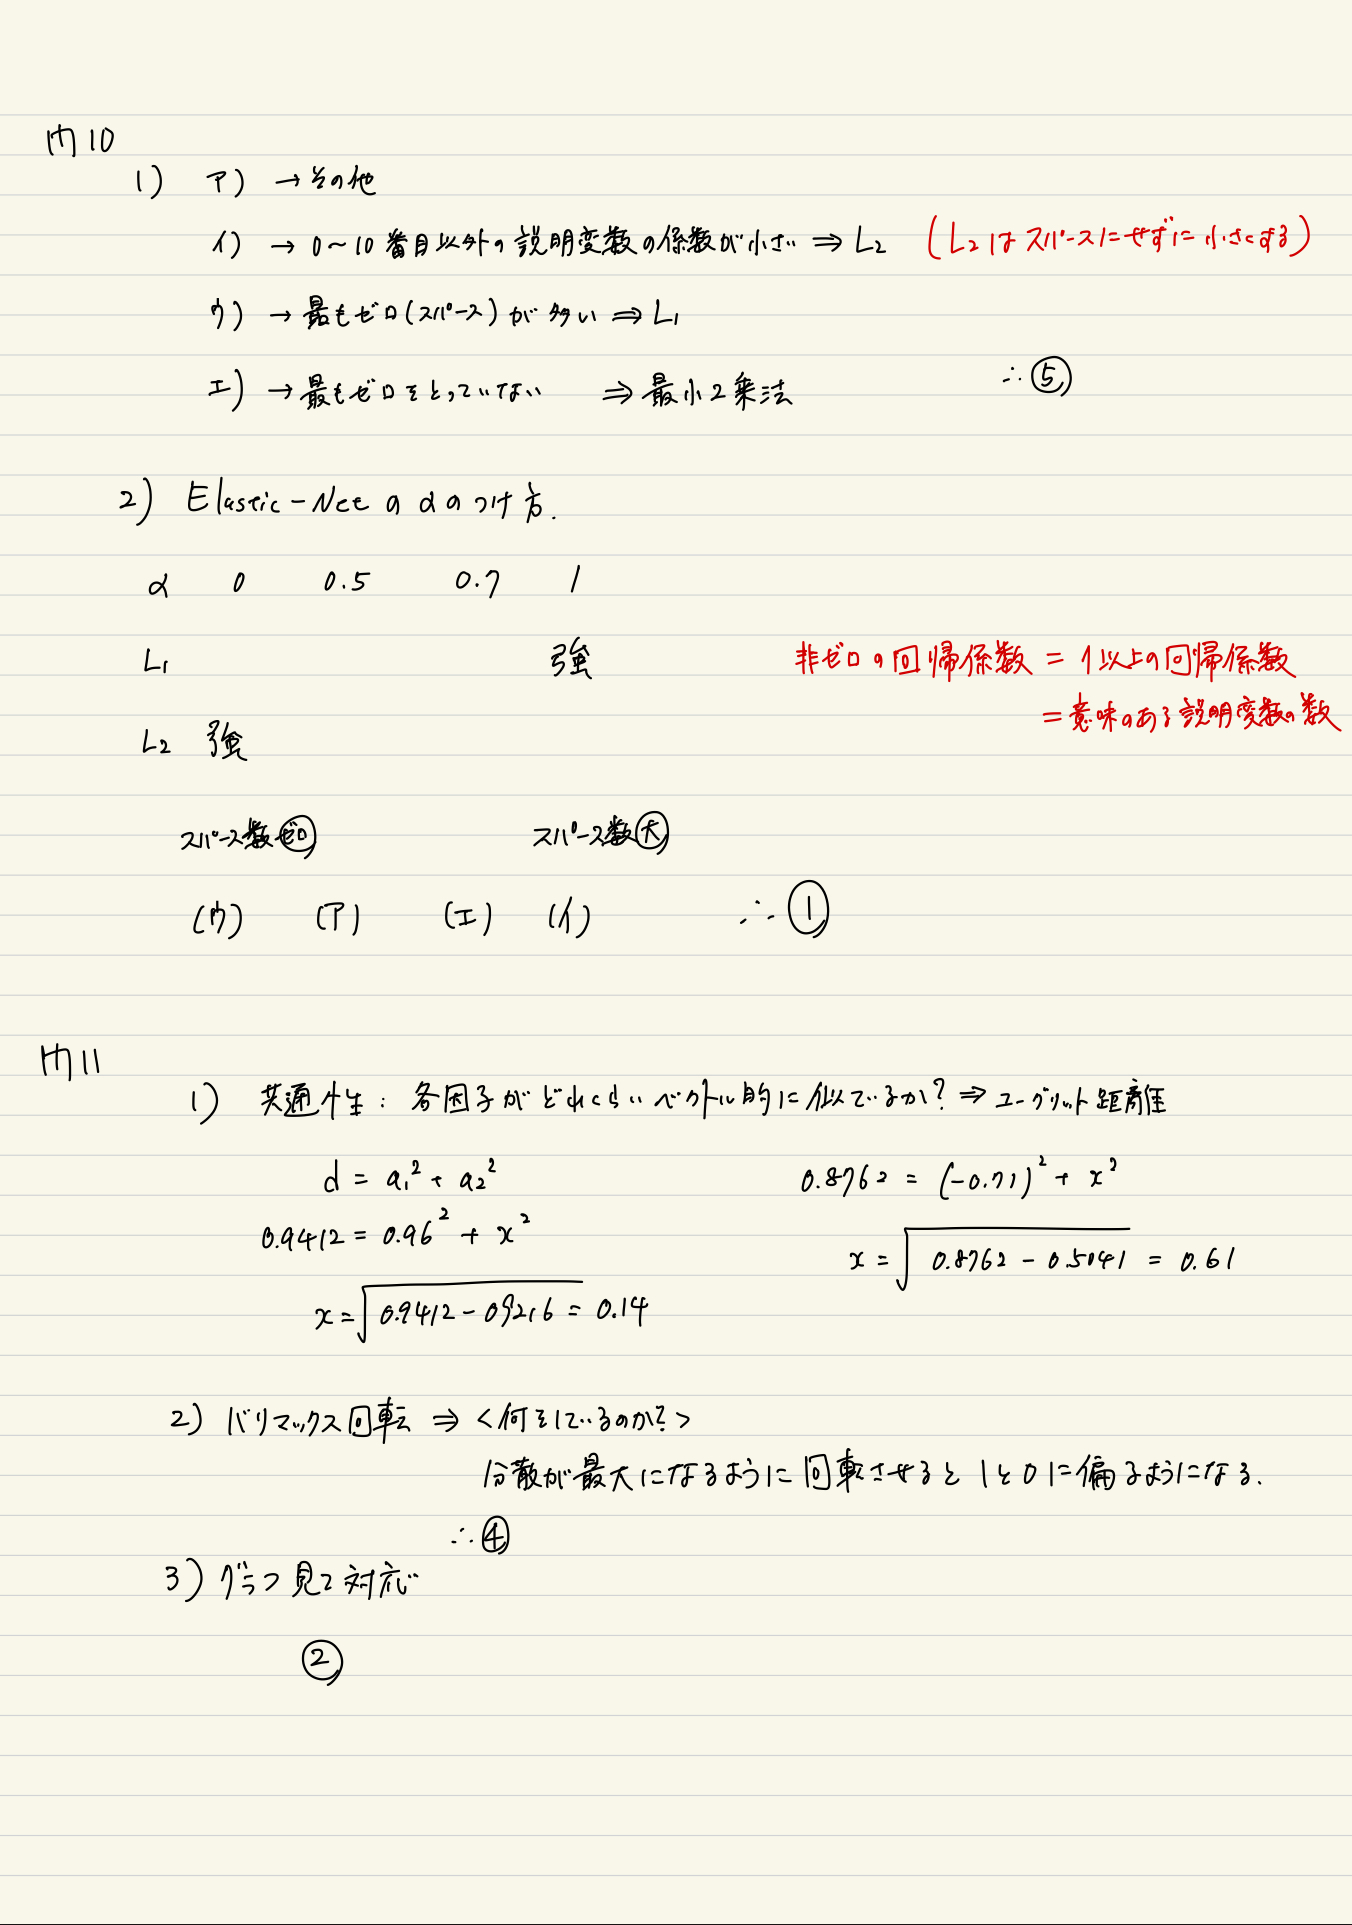 問10
1) ア) → その他
イ) → 0～10番目以外の説明変数の係数が小さい ⇒ L2 (L2はスパースにせずに小さくする)
ウ) → 最もゼロ(スパース)が多い ⇒ L1
エ) → 最もゼロをとっていない ⇒ 最小2乗法 ∴⑤
2) Elastic-Netのαのつけ方.
α 0 0.5 0.7 1
L1 強 非ゼロの回帰係数 = 1以上の回帰係数
= 意味のある説明変数の数
L2 強
スパース数ゼロ スパース数大
(ウ) (ア) (エ) (イ) ∴①
問11
1) 共通性: 各因子がどれくらいベクトル的に似ているか? ⇒ ユークリット距離
d = a1² + a2² 0.8762 = (-0.71)² + x²
0.9412 = 0.96² + x²
x = √0.8762 - 0.5041 = 0.61
x = √0.9412 - 0.9216 = 0.14
2) バリマックス回転 ⇒ <何をしているのか?>
分散が最大になるように回転させると1と0に偏るようになる.
∴④
3) グラフ見て対応
②